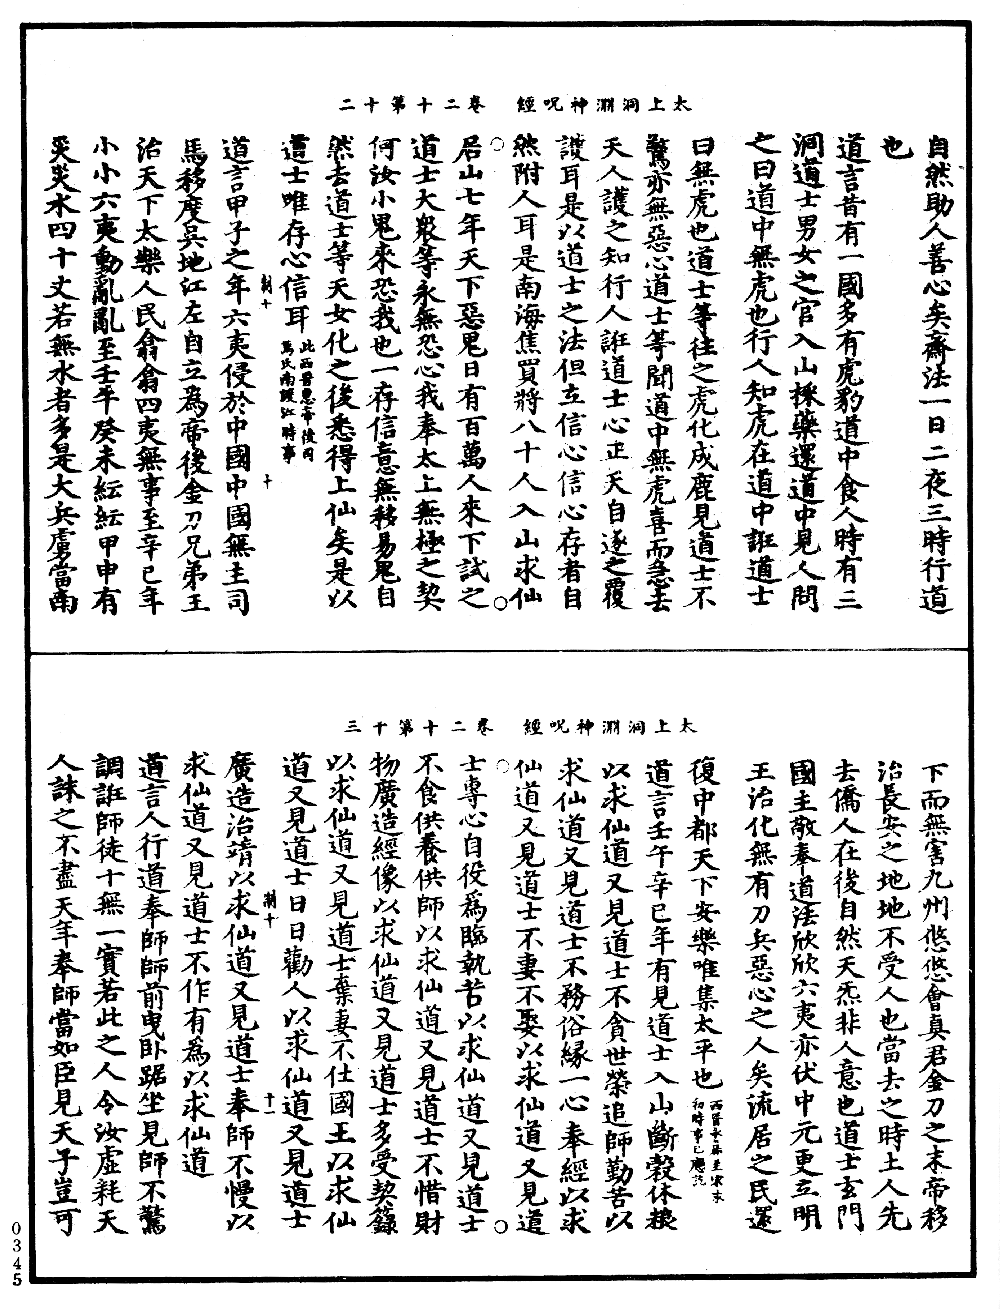 太上洞淵神呪經　卷二十第十二
自然助人善心矣齋法一日二夜三時行道
也
道言昔有一國多有虎豹道中食人時有三
洞道士男女之官入山採藥還道中見人問
之曰道中無虎也行人知虎在道中誑道士
曰無虎也道士等往之虎化成鹿見道士不
驚亦無惡心道士等聞道中無虎喜而急去
天人護之知行人誑道士心正天自遂之覆
護耳是以道士之法但立信心信心存者自
然附人耳是南海焦買將八十人入山求仙
居山七年天下惡鬼日有百萬人來下試之
道士大衆等永無恐心我奉太上無極之契
何汝小鬼來恐我也一存信意無移易鬼自
然去道士等天女化之後悉得上仙矣是以
道士唯存心信耳此西晉愍帝後司
馬氏南渡江時事
道言甲子之年六夷侵於中國中國無主司
馬移度吳地江左自立爲帝後金刀兄弟王
治天下太樂人民翕翕四夷無事至辛巳年
小小六夷動亂亂至壬午癸未紜紜甲申有
災災水四十丈若無水者多是大兵虜當南
太上洞淵神呪經　卷二十第十三
下而無害九州悠悠會真君金刀之末帝移
治長安之地地不受人也當去之時土人先
去僑人在後自然天炁非人意也道士玄門
國主敬奉道法欣欣六夷亦伏中元更立明
王治化無有刀兵惡心之人矣流居之民還
復中都天下安樂唯集太平也西晉
初時事已應訖
道言壬午辛巳年有見道士入山斷穀休粮
以求仙道又見道士不貪世榮追師勤苦以
求仙道又見道士不務俗緣一心奉經以求
仙道又見道士不妻不娶以求仙道又見道
士專心自役爲臨執苦以求仙道又見道士
不食供養供師以求仙道又見道士不惜財
物廣造經像以求仙道又見道士多受契籙
以求仙道又見道士棄妻不仕國王以求仙
道又見道士日日勸人以求仙道又見道士
廣造治靖以求仙道又見道士奉師不慢以
求仙道又見道士不作有爲以求仙道
道言人行道奉師師前曳卧踞坐見師不驚
調誑師徒十無一實若此之人令汝虛耗天
人誅之不盡天年奉師當如臣見天子豈可
0345